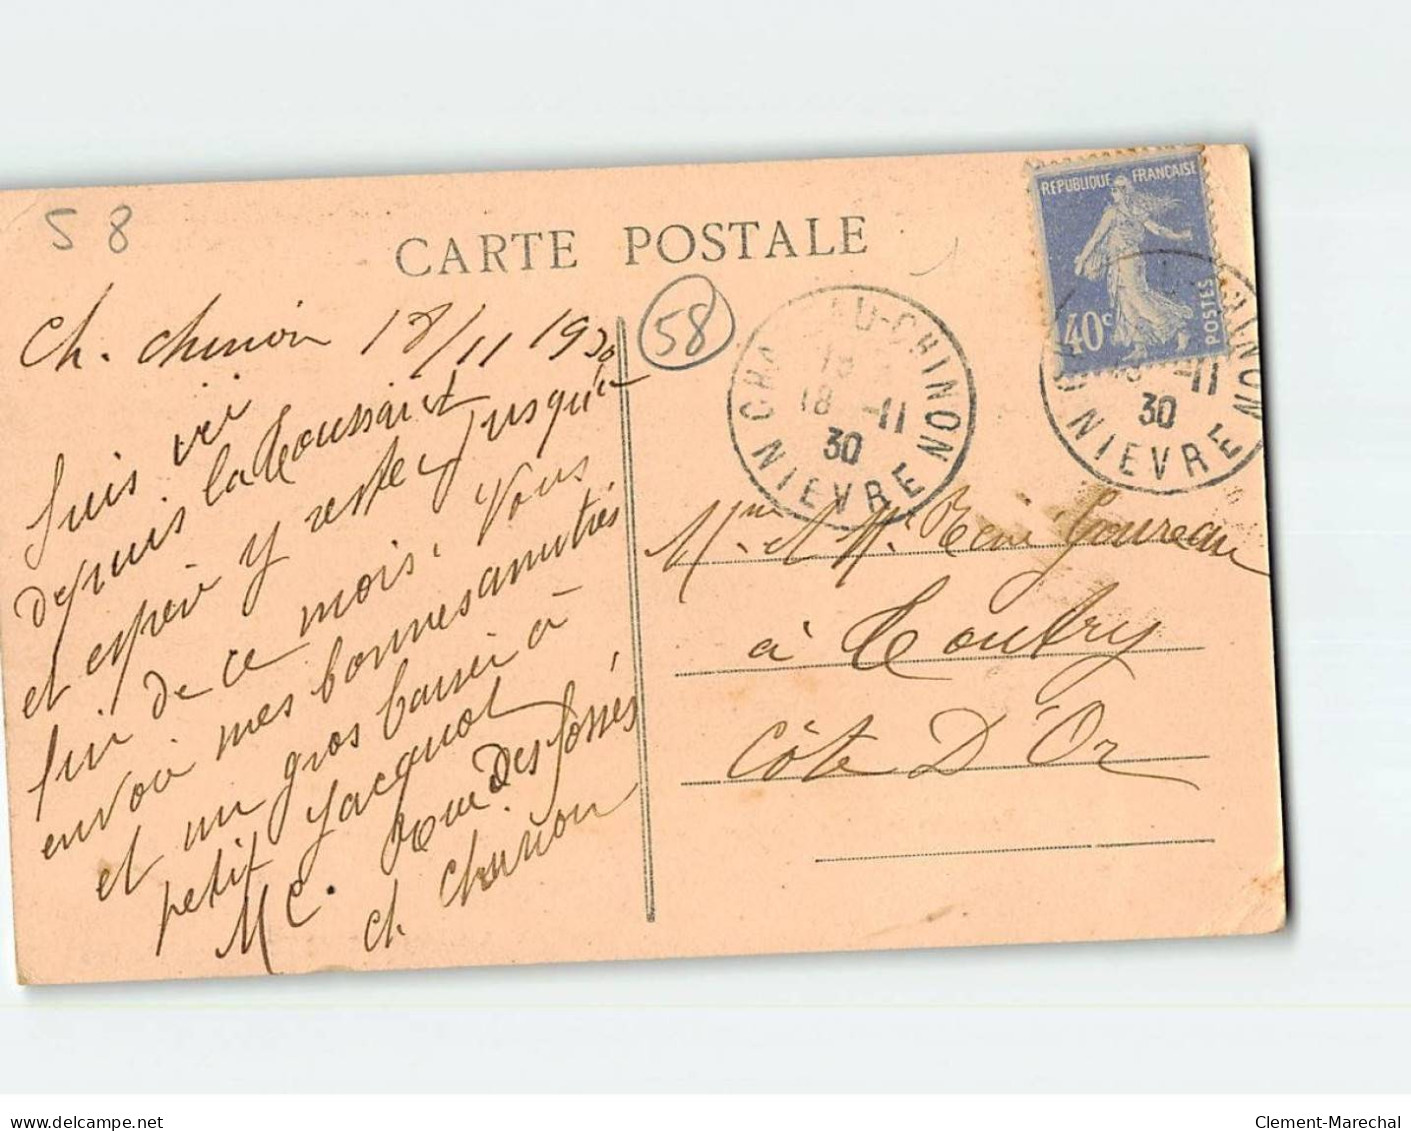 58
CARTE POSTALE
58
REPUBLIQUE FRANÇAISE
POSTES
40c
CHATEAU-CHINON
18 -11
30
NIEVRE
18 -11
30
NIEVRE
Ch. Chinon 18/11 1930
Suis ici
depuis la Toussaint
et espère y rester jusqu'à
fin de ce mois. Vous
envoi mes bonnes amitiés
et un gros baiser à
petit Jacquot
MC. Rue Des fossés
Ch. Chinon
Mme et M. René Goureau
à Toutry
Côte D'Or
Clement-Marechal
www.delcampe.net